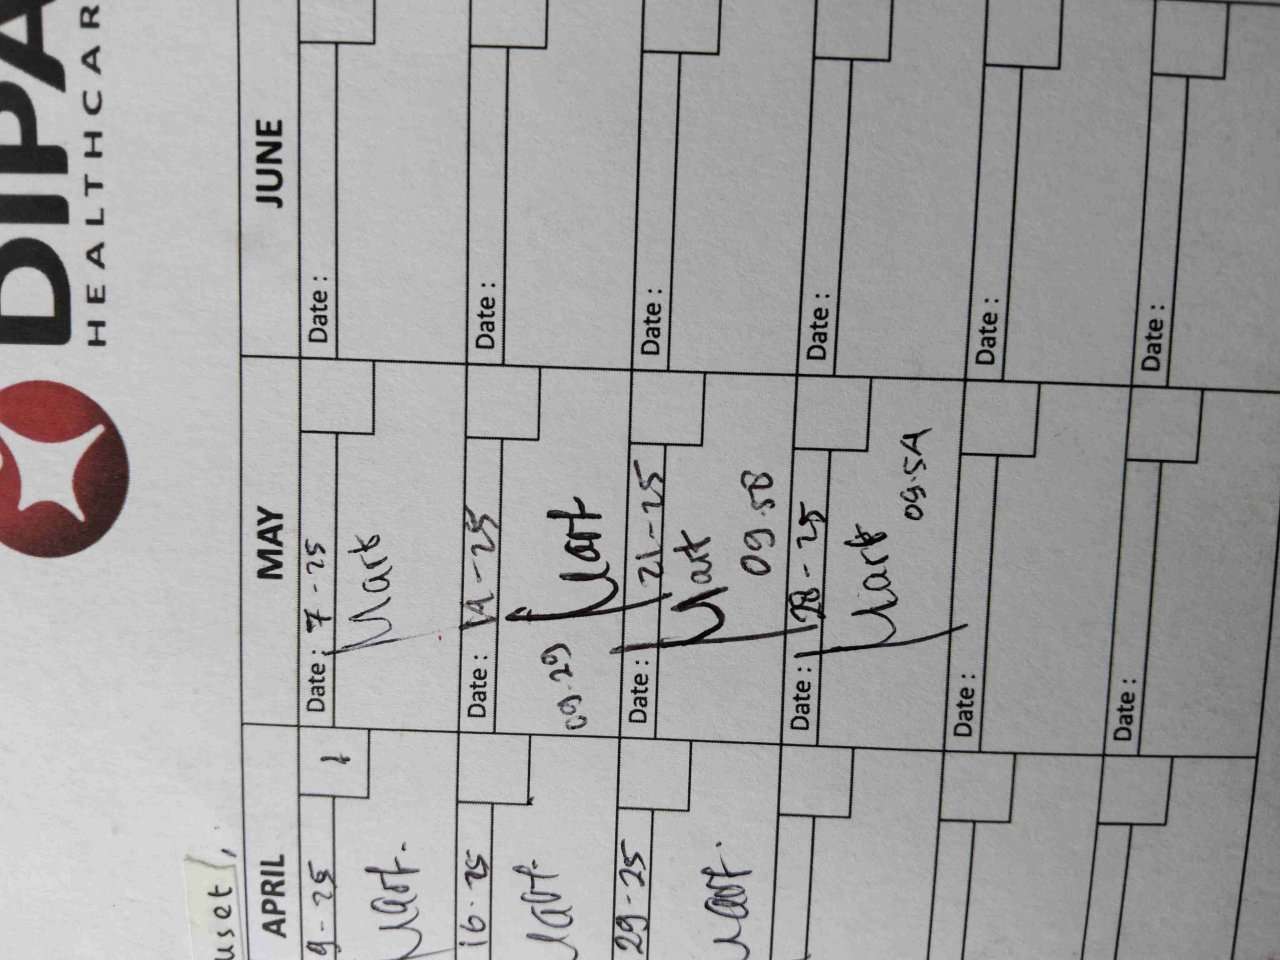 DIPA
HEALTHCAR
uset
APRIL
MAY
JUNE
9-25
1
Date: 7-25
Date:
Mark.
Mark
16-25
Date: 14-25
Date:
Mark.
09.29
Mark
29-25
Date: 21-25
Date:
Mark.
Mark
09.58
Date: 28-25
Date:
Mark
09.5A
Date:
Date:
Date:
Date: